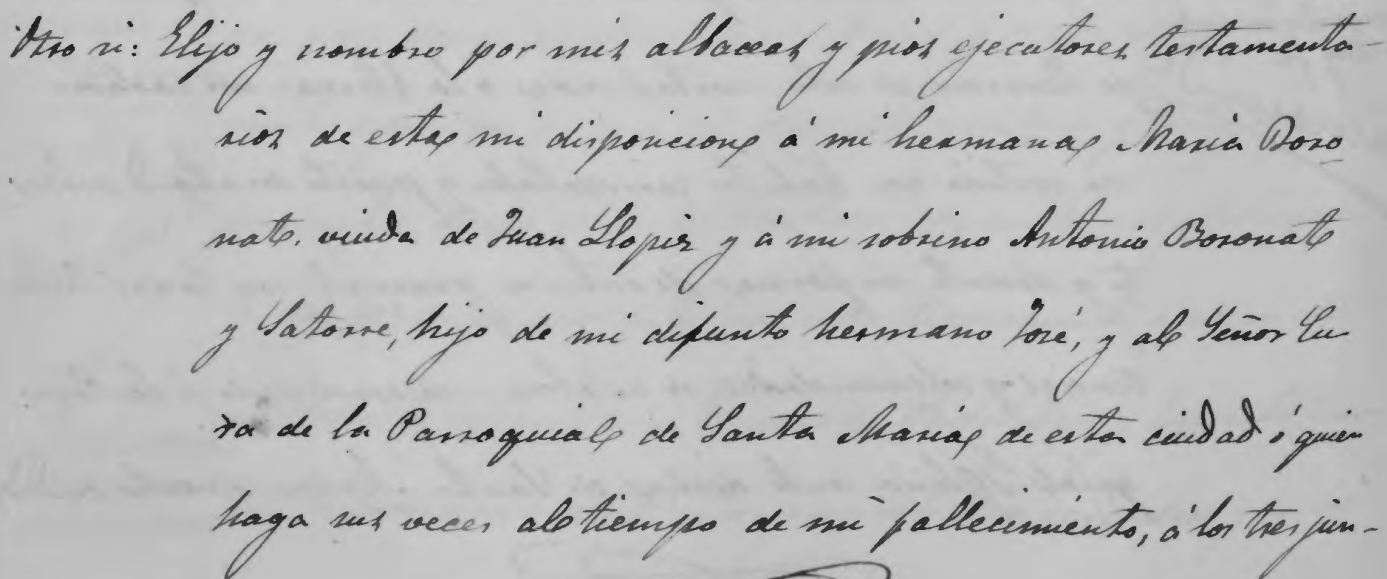 Otro si: Elijo y nombro por mis albaceas y pios ejecutores testamenta-
rios de esta mi disposicion á mi hermana Maria Boro
nat, viuda de Juan Llopis y á mi sobrino Antonio Boronat
y Satorre, hijo de mi difunto hermano José, y al Señor Cu
ra de la Parroquial de Santa Maria de esta ciudad ó quien
haga sus veces al tiempo de mi fallecimiento, á los tres jun-